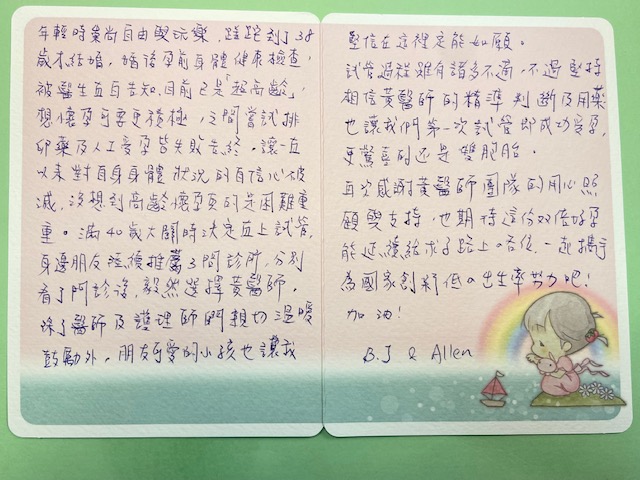 年輕時崇尚自由與玩樂，蹉跎到了38
歲才結婚，婚後孕前身體健康檢查，
被醫生直白告知，目前已是「超高齡」，
想懷孕可要更積極，之間嘗試排
卵藥及人工受孕皆失敗告終，讓一直
以來對自身身體狀況的自信心大破
滅，沒想到高齡懷孕真的是困難重
重。滿40歲大關時決定直上試管，
身邊朋友陸續推薦3間診所，分別
看了門診後，毅然選擇黃醫師。
除了醫師及護理師們親切溫暖
鼓勵外，朋友可愛的小孩也讓我
堅信在這裡定能如願。
試管過程雖有諸多不適，不過堅持
相信黃醫師的精準判斷及用藥
也讓我們第一次試管即成功受孕，
更驚喜的還是雙胞胎。
再次感謝黃醫師團隊的用心照
顧與支持，也期待這份双倍好孕
能延續給求子路上の各位，一起攜手
為國家創新低の出生率努力吧！
加油！
B.J & Allen